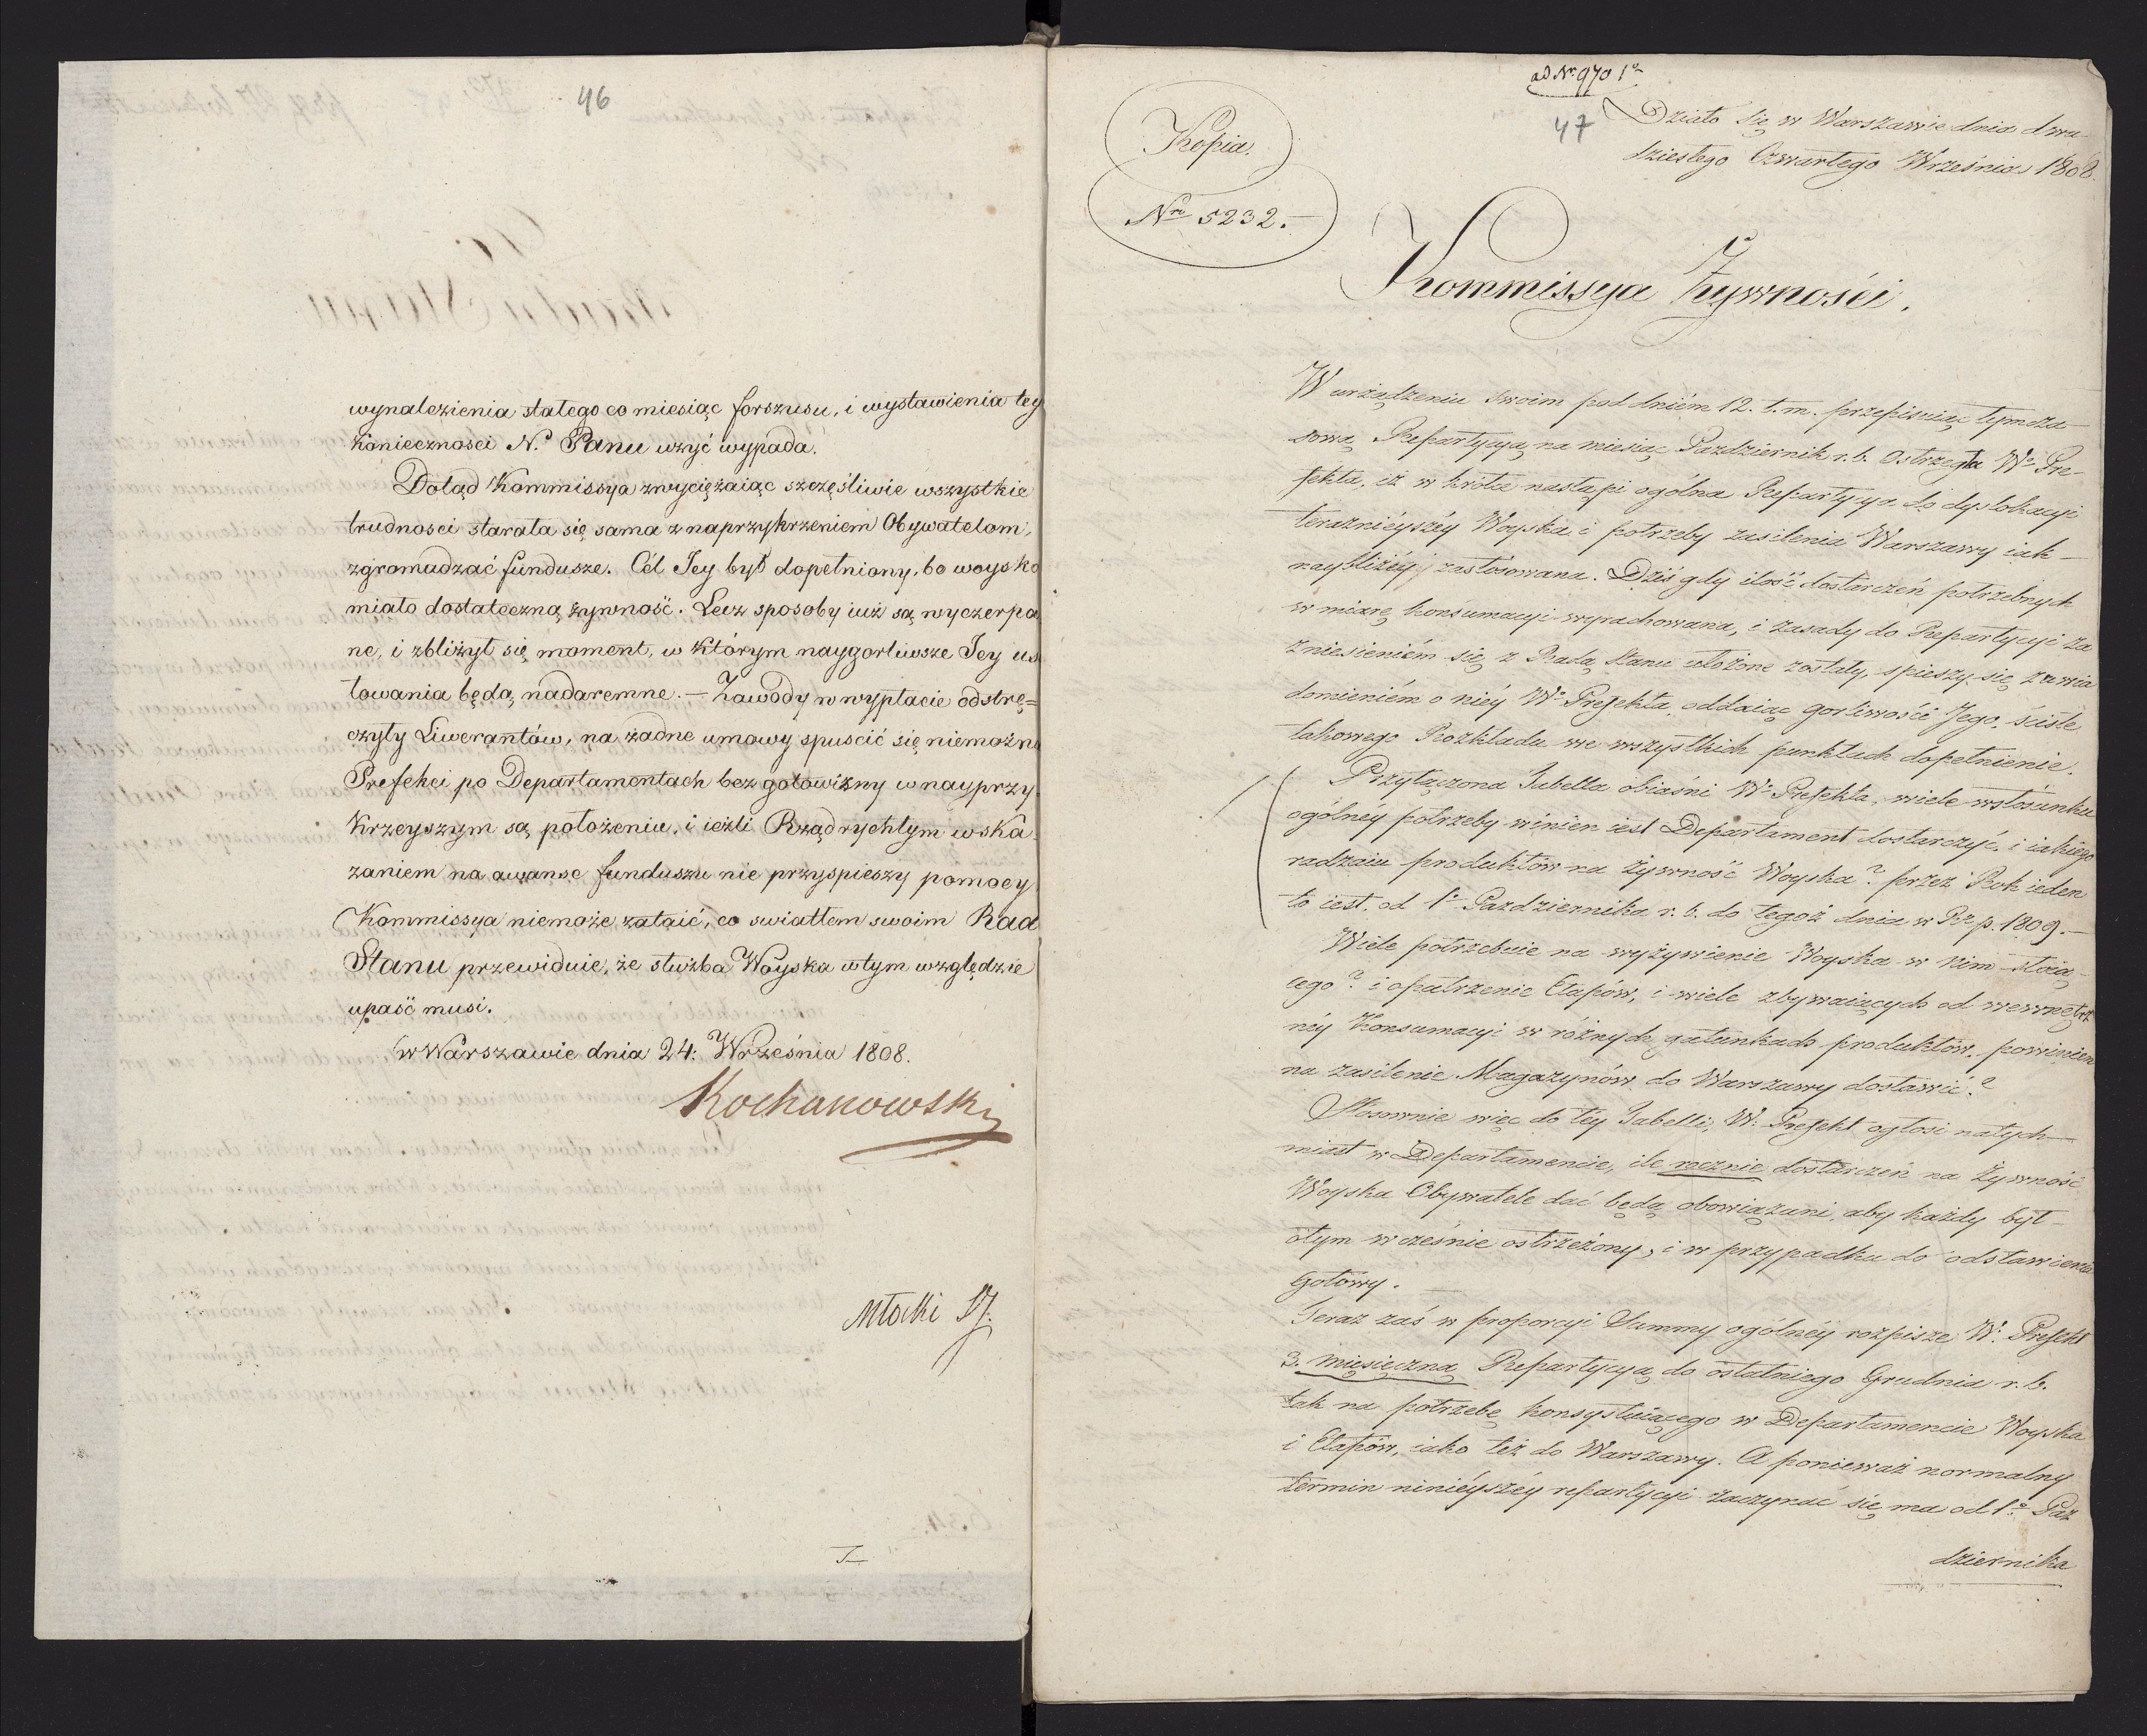 46
wynalezienia stałego co miesiąc forszusu, i wystawienia tey
konieczności N.º Panu użyć wypada.
Dotąd Kommissya zwyciężaiąc szczęśliwie wszystkie
trudności starała się sama z naprzykrzeniem Obywatelom,
zgromadzać fundusze. Cél Jey był dopełniony, bo woysko
miało dostateczną żywność. Lecz sposoby iuż są wyczerpa
ne, i zbliżył się moment, w którym naygorliwsze Jey usi
łowania będą nadaremne. — Zawody w wypłacie odstrę=
czyły Liwerantów, na żadne umowy spuścić się niemożna
Prefekci po Departamentach bez gotowizny w nayprzy
krzeyszym są położeniu, i ieżli Rząd rychłym wska
zaniem na awanse funduszu nie przyspieszy pomocy
Kommissya niemoże zataić, co światłem swoim Rad
Stanu przewiduie, że służba Woyska w tym względzie
upaść musi.
w Warszawie dnia 24: Września 1808.
Kochanowski
Młocki SJ.
ad Nr. 970 1º
47
Kopia.
Nro 5232.—
Działo się w Warszawie dnia dwu
dziestego Czwartego Września 1808.
Kommissya Żywności.
W urządzeniu swoim pod dniém 12. t. m. przepisuiąc tymcza
sową Repartycyą na miesiąc Pazdziernik r. b. Ostrzegła Wº Pre-
fekta, iż w krótce nastąpi ogólna Repartycya do dyslokacyi
teraznieyszéy Woyska i potrzeby zasilenia Warszawy iak-
naybliżéy zastósowana. Dziś gdy ilość dostarczeń potrzebnych
w miarę konsumacyi wyrachowana, i zasady do Repartycyi za
zniesieniém się z Radą Stanu ułożone zostały, spieszy się z uwia
domieniém o niéy Wº Prefekta, oddaiąc gorliwości Jego, ściśle
takowego Rozkładu we wszystkich punktach dopełnienie.
Przyłączona Tabella obiaśni Wº Prefekta, wiele w stósunku
ogólnéy potrzeby winien iest Departament dostarczyć, i iakiego
rodzaiu produktów na żywność Woyska? przez Rok ieden
to iest. od 1º Pazdziernika r. b. do tegoż dnia w Rº p. 1809.—
Wiele potrzebuie na wyżywienie Woyska w nim stoią-
cego? i opatrzenie Etapów, i wiele zbywaiących od wewnętrz
néy Konsumacyi w różnych gatunkach produktów, powinien
na zasilenie Magazynów do Warszawy dostawić?
Stósownie więc do téy Tabelli, W. Prefekt ogłosi natych-
miast w Departamencie, ile rocznie dostarczeń na Żywność
Woyska Obywatele dać będą obowiązani, aby każdy był-
o tym wcześnie ostrzeżony, i w przypadku do odstawienia
gotowy.
Teraz zaś w proporcyi Summy ogólnéy rozpisze W. Prefekt
3. miesięczną Repartycyą do ostatniego Grudnia r. b.
tak na potrzebę konsystuiącego w Departamencie Woyska
i Etapów, iako też do Warszawy. A ponieważ normalny
termin ninieyszéy repartycyi zaczynać się ma od 1º Paz
dziernika